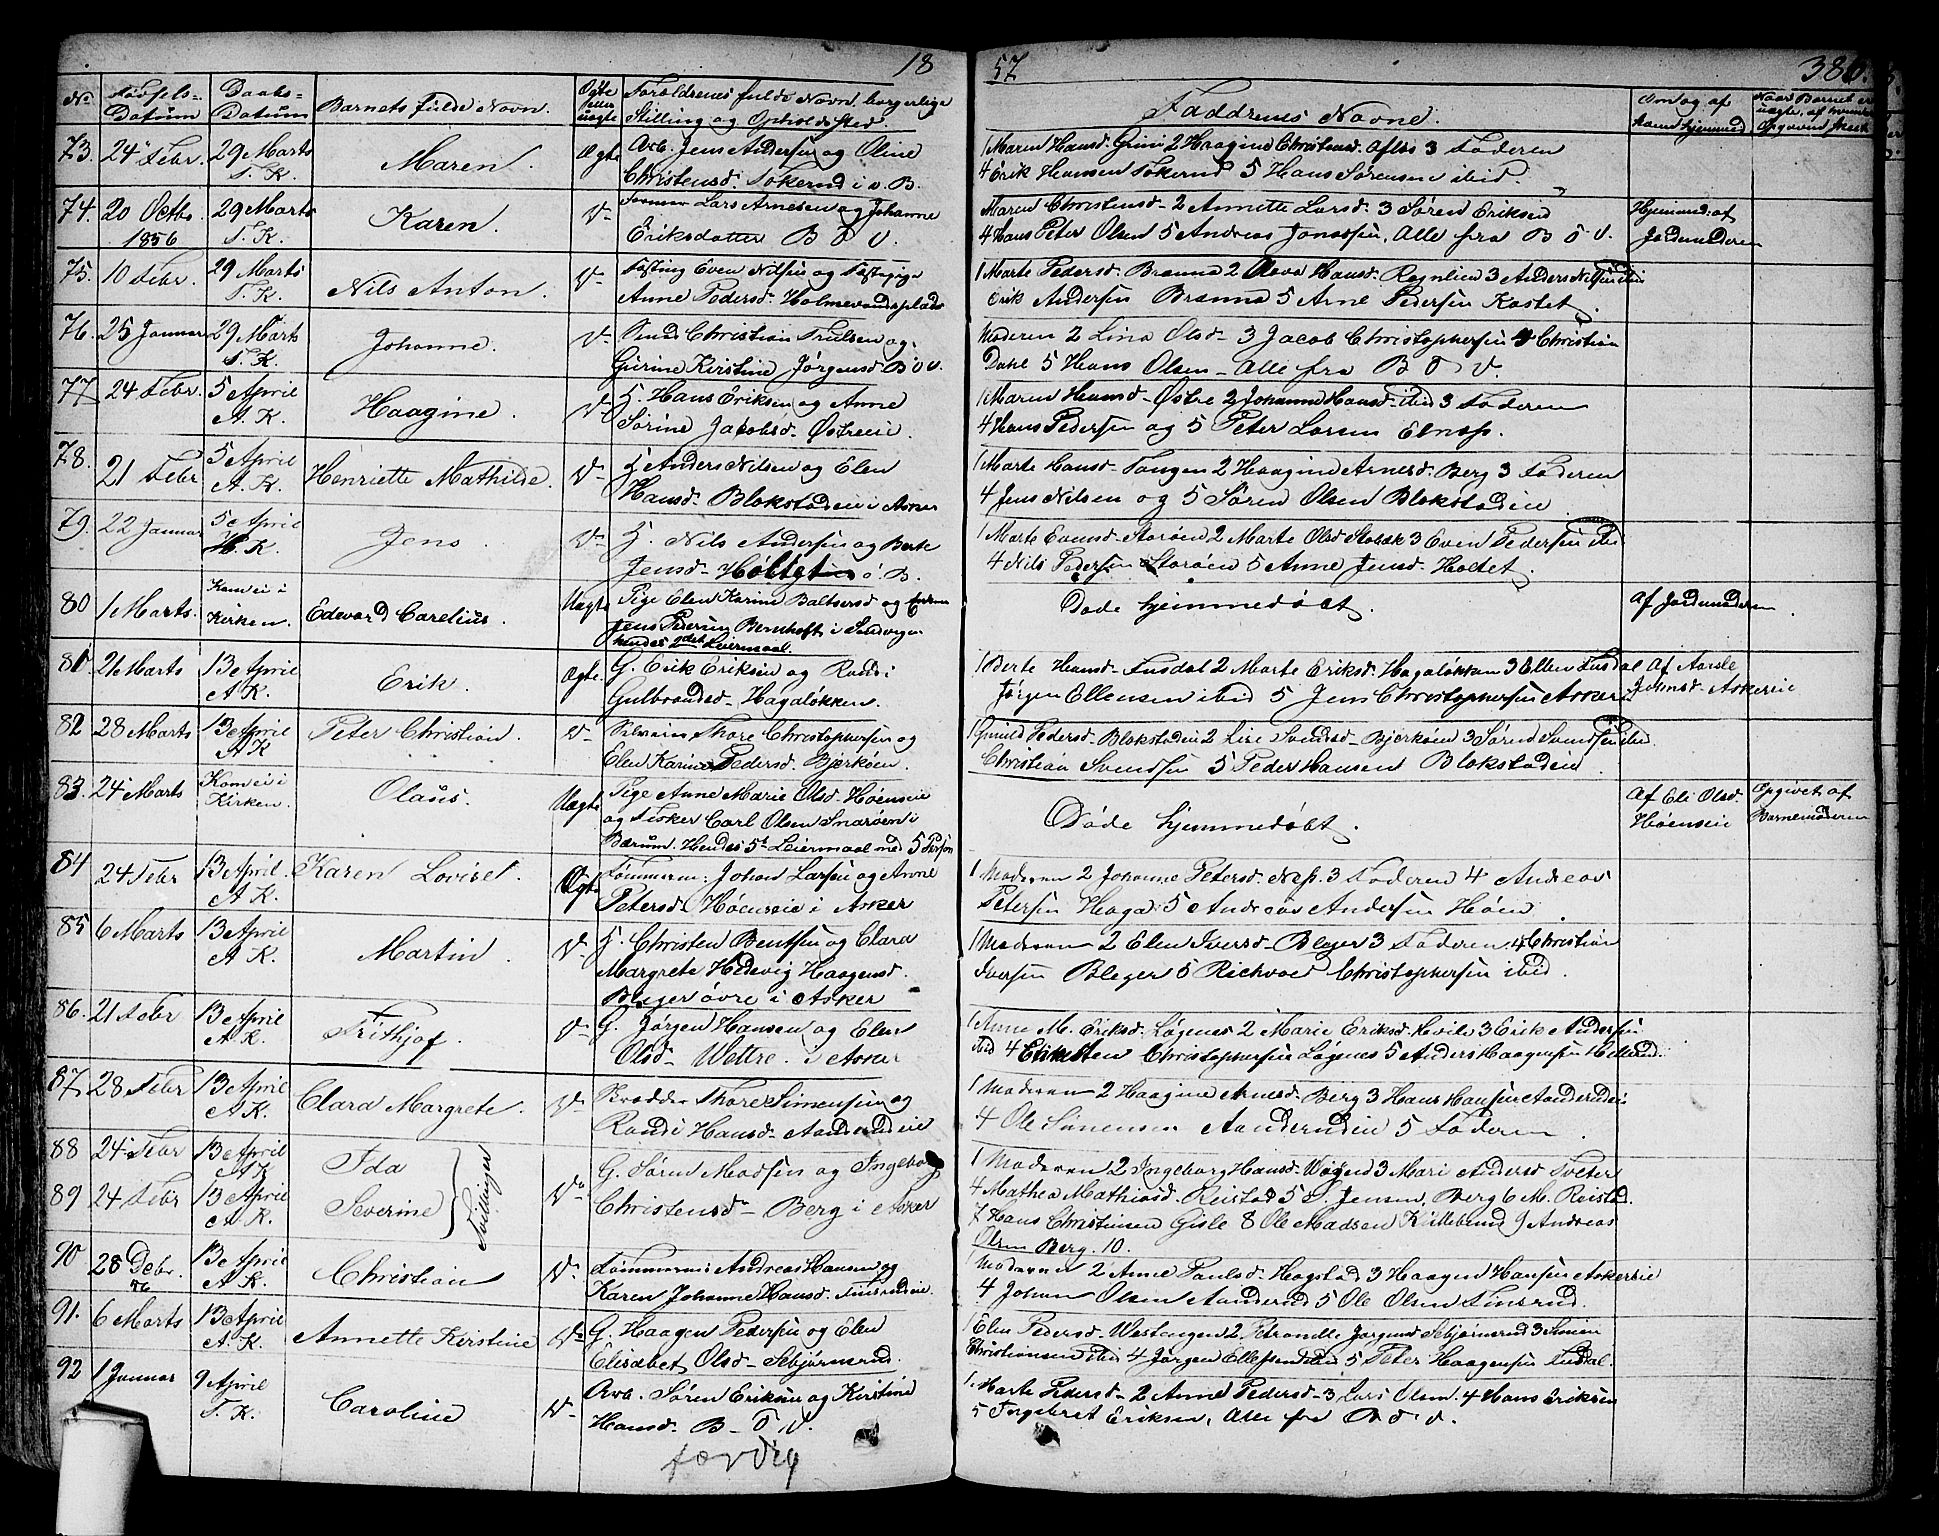 18
57
No
Datum
Daabs-
Datum
Barnets fulde Navn.
Ægte
eller
uægte
Forældrenes fulde Navn, borgerlige
Stilling og Opholdssted.
Faddrenes Navne.
73. 24 Febr. 29 Marts T. K. Maren. Ægte Arb. Jens Andersen og Oline
Christensd. i v. B.
1 Maren Hansd. Grini 2 Haagine Christensd. 3 Faderen
4 Erik Hansen 5 Hans Sørensen ibid.
74. 20 Octbr. 1856 29 Marts T. K. Karen. Lars Arnesen og Johanne
Eriksdatter B Ø V.
Maren Christensd. 2 Annette Larsd. 3 Søren Eriksen
4 Hans Peter Olsen 5 Andreas Jonassen, Alle fra B Ø V.
Hjemmed. af
Jordmoderen
75. 10 Febr. 29 Marts T. K. Nils Anton. Even Nilsen og
Anne Pedersd. Holmevandsplads
1 Marte Pedersd. Brænna 2 Hansd. 3 Anders Nilsen ibid
Erik Andersen Brænna 5 Arne Pedersen Kastet.
76. 25 Januar 29 Marts T. K. Johanne. Christian Trulsen og
Gurine Kirstine Jørgensd. B Ø V.
Moderen 2 Lina Olsd. 3 Jacob Christophersen 4 Christian
Dahl 5 Hans Olsen Alle fra B Ø V.
77 24 Febr. 5 April A. K. Haagine. Hans Eriksen og Anne
Sørine Jacobsd.
1 Maren Hansd. Østre 2 Johanne Hansd. ibid 3 Faderen
4 Hans Pedersen og 5 Peter Larsen
78. 21 Febr 5 April A. K. Henriette Mathilde. Anders Nilsen og Elen
Hansd. Blokstadeie i Asker
1 Marte Hansd. Tangen 2 Haagine Arnesd. Berg 3 Faderen
4 Jens Nilsen og 5 Søren Olsen Blokstadeie
79. 22 Januar 5 April K. Jens Nils Andersen og Berte
Jensd. ø. B.
1 Marte Evensd. Storøen 2 Marte Olsd 3 Even Pedersen ibid
4 Nils Pedersen Storøen 5 Anne Jensd. Holtet.
80 1 Marts. Kom ei i Kirken. Edevard Carelius. Uægte Pige Elen Karine Baltsersd og
Jens Petersen Bernhoft i Sandvigen
hendes 2det Leiermaal.
Døde hjemmedøbt.
Af Jordmoderen
81. 21 Marts 13 April A K. Erik. Ægte. G. Erik Eriksen og Randi
Gulbrandsd. Hagaløkken.
1 Berte Hansd. Fusdal 2 Marte Eriksd. Hagaløkken 3 Ellen Fusdal
Jørgen Ellensen ibid 5 Jens Christophersen Asker
82 28 Marts 13 April A K Peter Christian. Thore Christophersen og
Elen Karine Pedersd. Bjerkøen.
1 Gunild Pedersd. Blokstadeie 2 Lise Svendsd. Bjerkøen 3 Søren Svendsen ibid.
Christian Svendsen 5 Peder Hansen Blokstadeie
83. 24 Marts Kom ei i Kirken. Olaus. Uægte Pige Anne Marie Olsd. Høenseie
og Fisker Carl Olsen Snarøen i
Bærum. Hendes 5te Leiermaal med 5 Person
Døde hjemmedøbt.
Af Eli Olsd.
Høenseie
Opgivet af
Barnemoderen
84 24 Febr 13 April A K. Karen Lovise. Ægte Johan Larsen og Anne
Petersd. Høenseie i Asker
1 Moderen 2 Johanne Petersd. Nes. 3 Faderen 4 Andreas
Petersen Haga 5 Andreas Andersen Høen
85 6 Marts 13 April A K. Martin. Christen Bentsen og Clara
Margrete Hedevig Haagensd.
Bleger øvre i Asker
1 Moderen 2 Elen Iversd. Bleger 3 Faderen 4 Christian
Iversen Bleger 5 Christophersen ibid.
86. 21 Febr 13 April A. K. Frithjof. G. Jørgen Hansen og Elen
Olsd. Wettre i Asker
1 Anne M. Eriksd. Løgenes 2 Marie Eriksd. Hvile 3 Erik Andersen
ibid 4 Christophersen Løgenes 5 Anders Haagensen
87. 28 Febr 13 April A K. Clara Margrete. Thore Simensen og
Randi Hansd. Aanderudeie
1 Moderen 2 Haagine Arnesd. Berg 3 Hans Hansen Aanderudeie
4 Ole Simensen Aanderudeie 5 Faderen
88 24 Febr 13 April A K Ida Tvillinger G. Søren Madsen og Ingeborg
89 24 Febr 13 April A. K. Severine Christensd. Berg i Asker
1 Moderen 2 Ingeborg Hansd. 3 Mari Andersd Tveter
4 Mathea Mathiasd. Reistad 5 S. Jensen, Berg 6 M. Reistad.
7 Hans Christensen Gisle 8 Ole Madsen Killebund 9 Andreas
Olsen Berg. 10.
90 28 Debr. 56 13 April A K. Christian Andreas Hansen og
Karen Johanne Hansd. Finsrudeie.
Moderen 2 Anne Paulsd. Hogstad 3 Haagen Hansen Askereie
4 Johan Olsen Aanderud 5 Ole Olsen Finsrud.
91. 6 Marts 13 April A. K. Annette Kirstine G. Haagen Pedersen og Elen
Elisabet Olsd. Sebjørnsrud.
1 Elen Pedersd. Westengen 2 Petronelle Jørgensd Sebjørnsrud 3 Simen
Christiansen ibid 4 Jørgen Ellefsen ibid 5 Peter Haagensen Fusdal.
92 1 Januar 9 April T. K. Caroline Arb. Søren Eriksen og Kirstine
Hansd. B. Ø V.
1 Marte Pedersd. 2 Anne Pedersd. 3 Lars Olsen 4 Hans Eriksen
5 Ingebret Eriksen, Alle fra B Ø V.
færdig